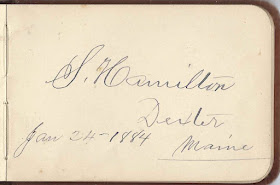 S. Hamilton
Dexter
Jan 24-1884
Maine